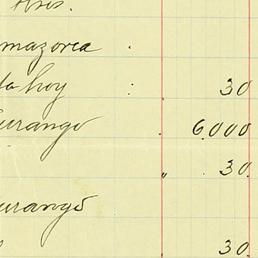 mazorca .
hoy : 30
urango " 6.000
" 30
urango
30